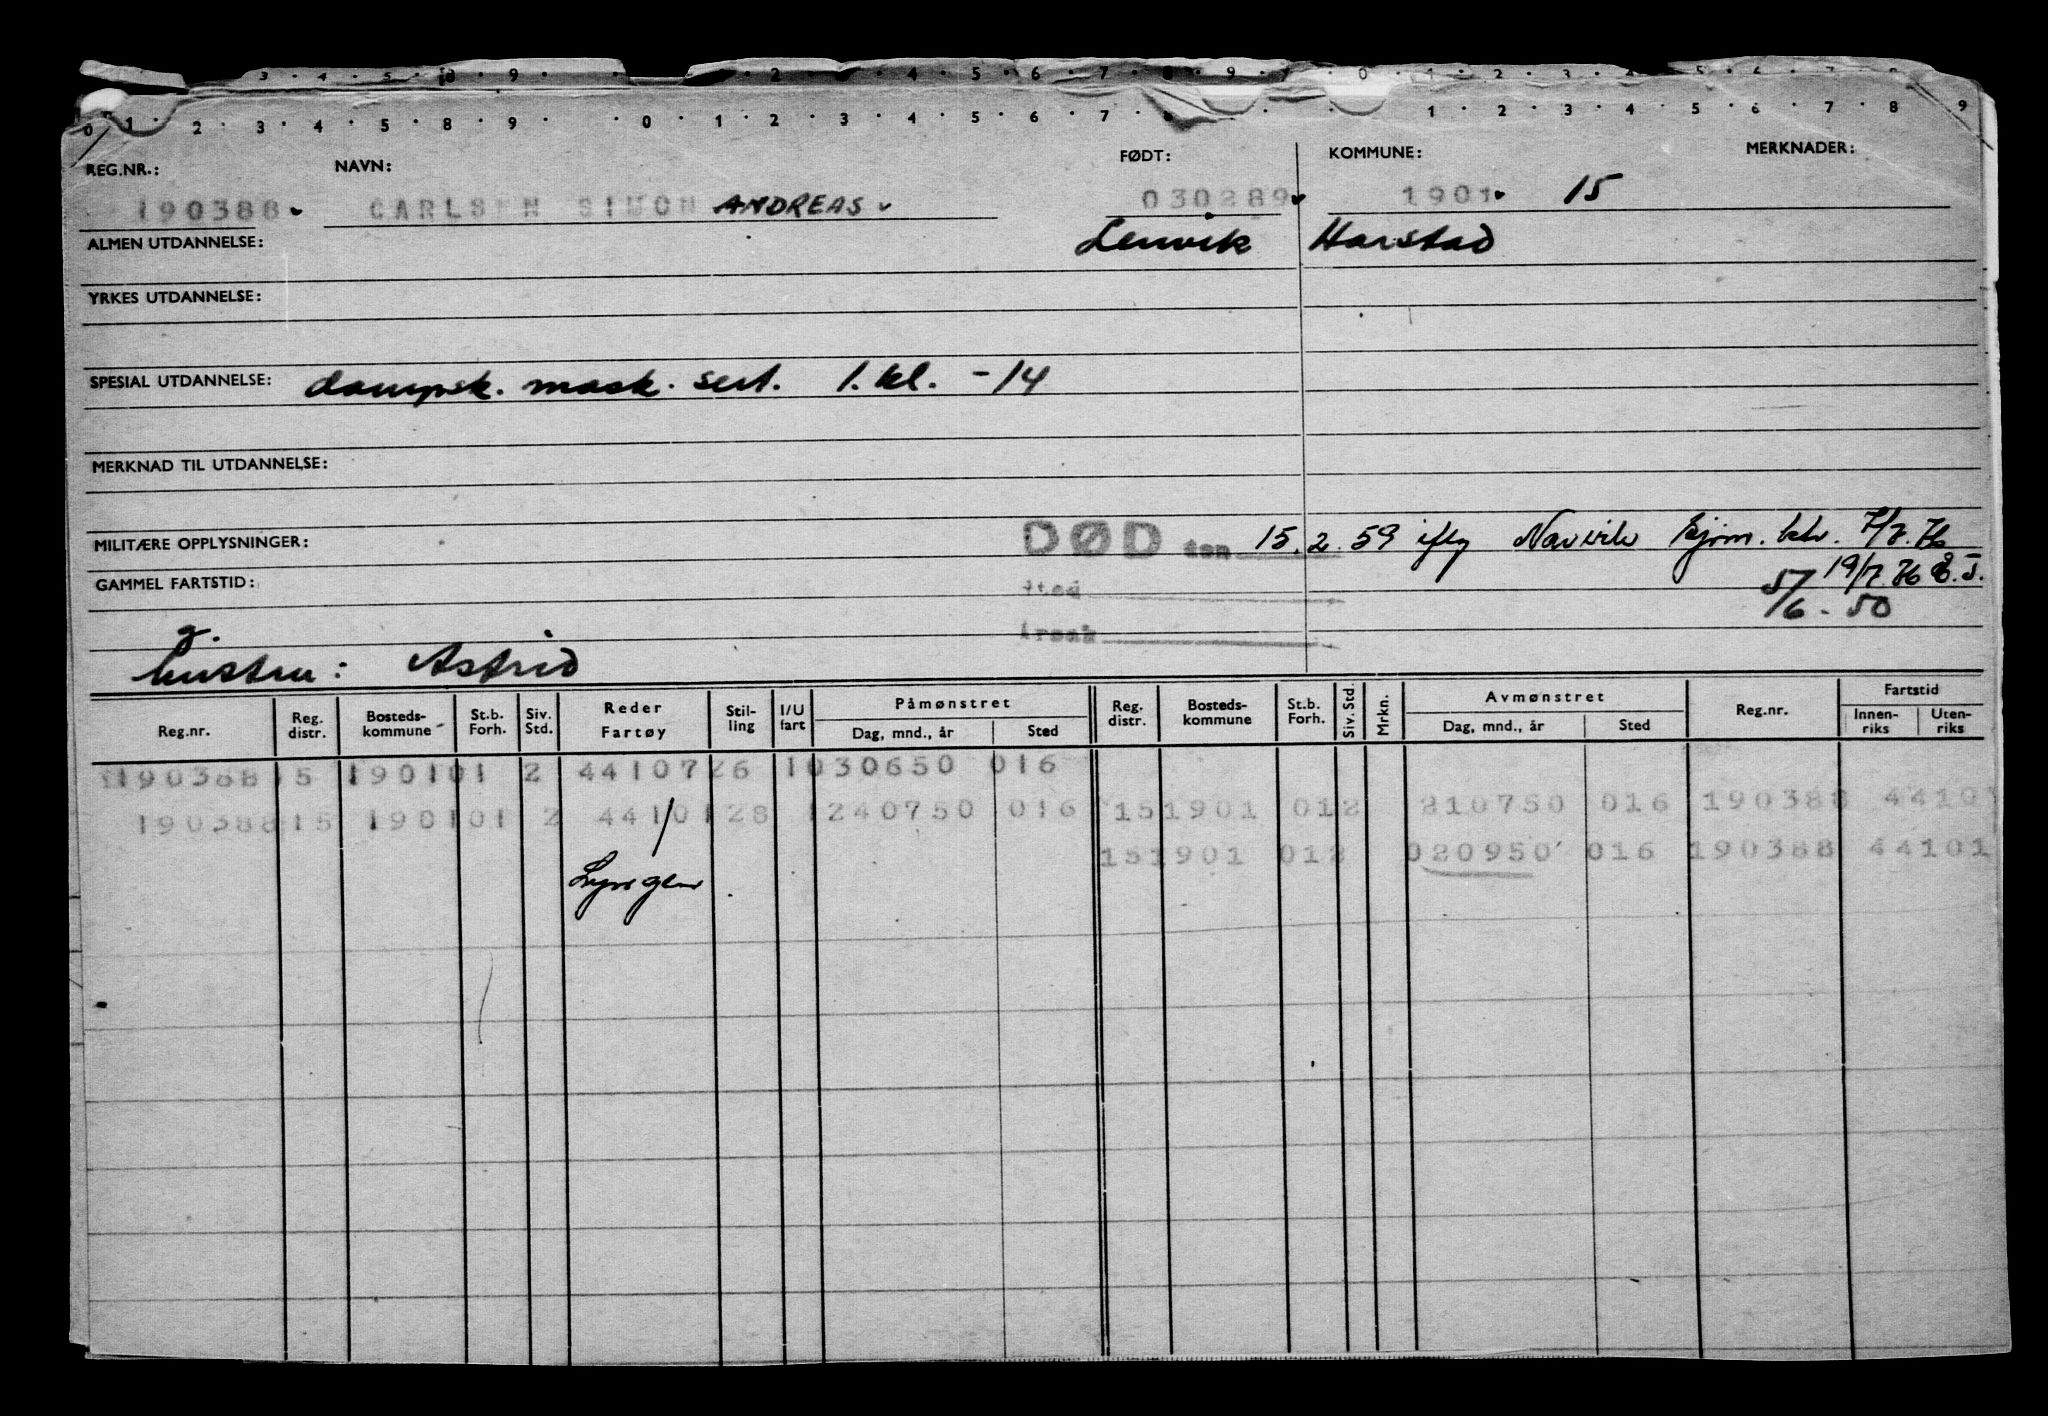 3 · 4 · 5 · 8 · 9 · · 2 · 3 · 4 · 5 · 6 · 7 · 8 · 9 · · 0 · 1 · 2 · 3 · 4 · 5 · 6 · 7 · 8
0 1 · 2 · 3 · 4 · 5 · 8 · 9 · · 0 · 1 · 2 · 3 · 4 · 5 · 6 · 7 · 8 · · · 1 · 2 · 3 · 4 · 5 · 6 · 7 · 8 · 9
REG.NR.: NAVN: FØDT: KOMMUNE: MERKNADER:
190388 CARLSEN SIMON ANDREAS 030289 1901 15
ALMEN UTDANNELSE: Lenvik Harstad
YRKES UTDANNELSE:
SPESIAL UTDANNELSE: dampsk. mask. sert. 1. kl. - 14
MERKNAD TIL UTDANNELSE:
MILITÆRE OPPLYSNINGER: DØD den 15.2.59 iflg Narvik hjem. ktr. 7/7.76
GAMMEL FARTSTID: sted 19/7.76
5/6 - 50
g. årsak
hustru: Astrid
Reg.nr. Reg. distr. Bosteds-kommune St.b. Forh. Siv. Std. Reder Fartøy Stil-ling I/U fart Påmønstret Dag, mnd., år Sted Reg. distr. Bosteds-kommune St.b. Forh. Siv. Std. Mrkn. Avmønstret Dag, mnd., år Sted Reg.nr. Fartstid Innen-riks Uten-riks
190388 15 1901 01 2 44107 26 1 030650 016
190388 15 1901 01 2 44101 28 1 240750 016 15 1901 01 2 210750 016 190388 44107
15 1901 01 2 020950 016 190388 44101
Lyngen